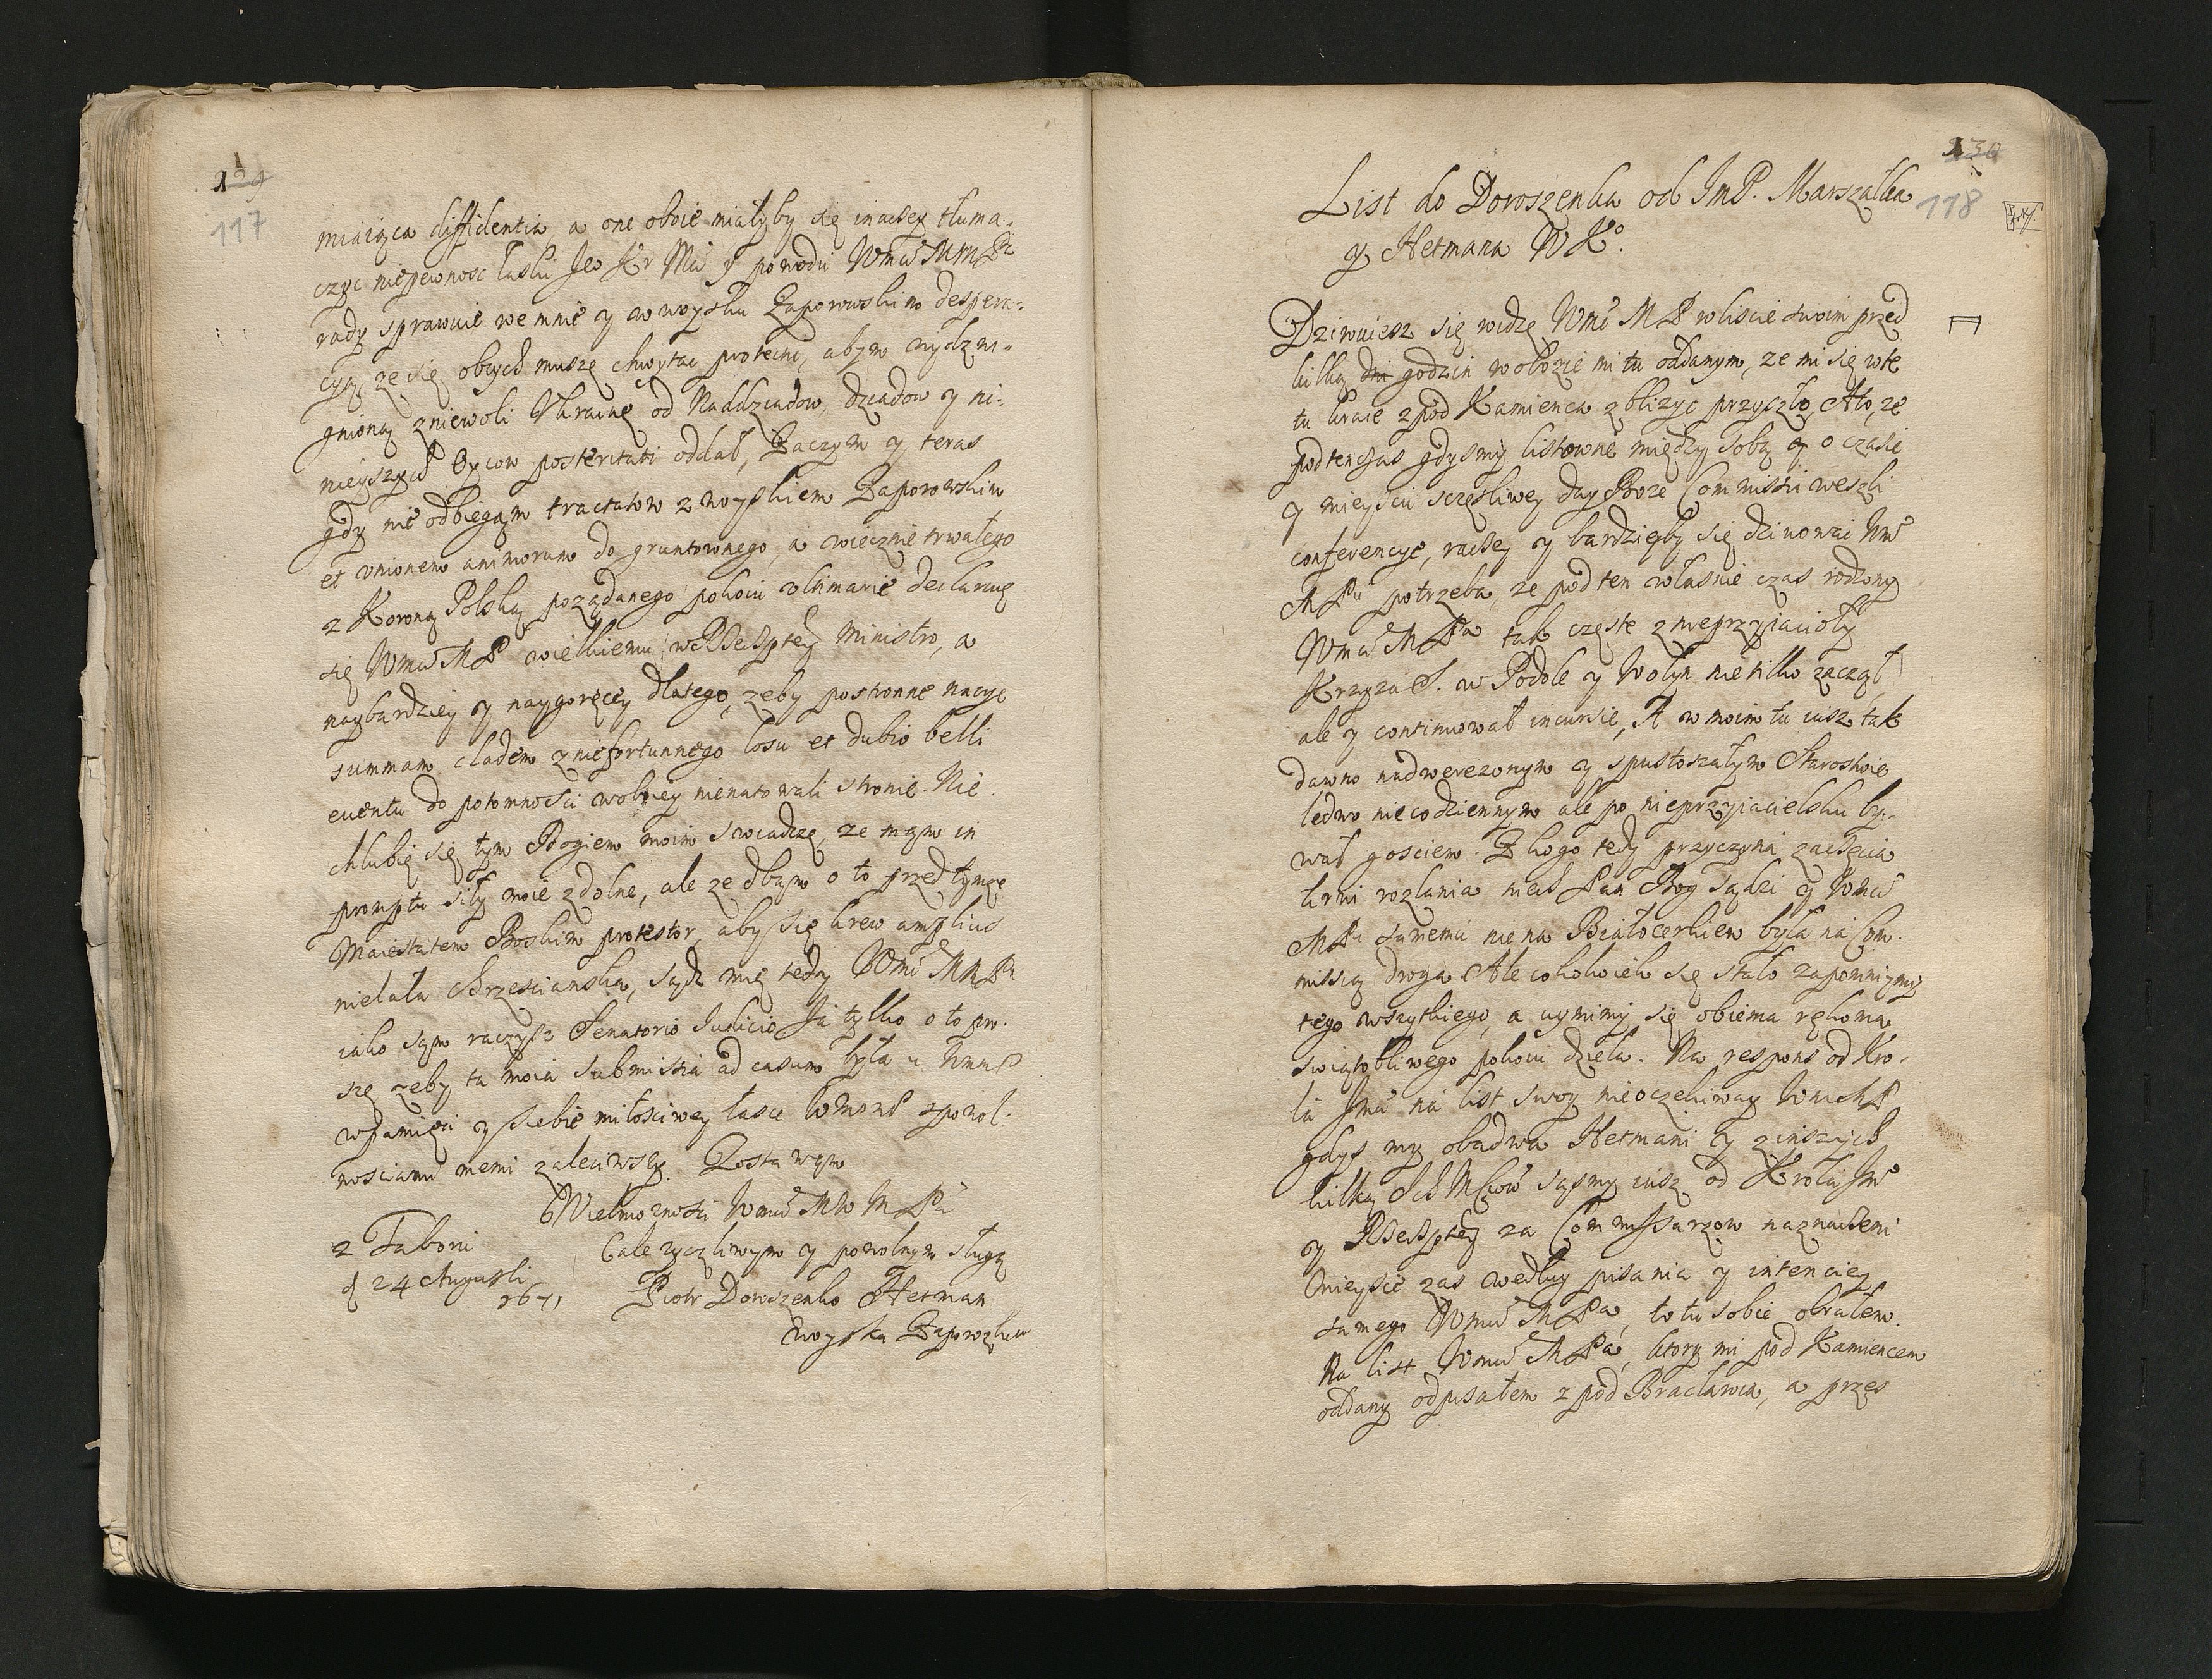 129
117
miaiąca diffidentia a one oboie miałyby się inaczey tłuma-
czyc niepewnosc łaski Jeo Kr Mci y powodu Wmci MMPa
rady sprawuie we mnie y w woysku Zaporowskim despera-
cyą, ze się obcych muszę chwytac proteciy, abym
gnioną zniewoli Ukrainę od Naddziadow, dziadow y ni-
nieyszych Oycow posteritati oddał, Zaczym y teras
gdy nie odbiegam tractatow z woyskiem Zaporowskim
et unionem animorum do gruntownego, a wiecznie trwałego
z Koroną Polską pożądanego pokoiu ultimarie declaruię
się Wmci MP wielkiemu w Rzeczptey Ministro, a
naybardziey y naygoręcey dlatego, zeby postronne nacye
summam cladem z niefortunnego losu et dubio belli
euentu do potomnosci wolney nienatowali stronie. Nie
chlubię się tym Bogiem moim swiadczę, ze mąm in
promptu siły moie zdolne, ale ze dbąm o to przed tymze
Maiestatem Boskim protestor, aby się krew amplius
nielała Chrzescianska, sądz mię tedy Wmc MMPa
iako sąm raczysz Senatorio Iudicio Ja tylko o to pro-
szę zeby ta moia submissia ad casum była u WmmP
w pamięci y siebie miłosciwey łasce WmmP z powol-
nosciami memi zaleciwszy. Zostawąm
Wielmoznosci Wmci MM Pa
z Taboru
d 24 Augusti
1671
Cale zyczliwym y powolnym sługą
Piotr Doroszenko Hetman
Woyska Zaporozkie
130
118
List do Doroszenka od JmP. Marszałka
y Hetmana WKo.
Dziwuiesz się widzę Wmc MP w liscie swoim przed
kilką dni godzin w obozie mi tu oddanym, ze mi się w te
tu kraie z pod Kamienca zblizyc przyszło, Ato, ze
podtenczas gdysmy listownie między sobą y o czasie
y mieyscu sczęsliwey day Boze Commissii weszli
conferencye, raczey y bardzięby się dziwowac Wm
MPu potrzeba, ze pod ten własnie czas rodzony
Wmci MPa tak częste z nieprzyiacioły
Krzyza S. w Podole y Wołyn nie tilko zaczął
ale y continuował incursie, A w moim tu iusz tak
dawno nadwerezonym y spustoszałym Starostwie
ledwo niecodziennym ale po nieprzyiacielsku by-
wał gosciem. Z kogo tedy przyczyna zaczęcia
krwi rozlania niech Pan Bog sądzi y Wmci
MPu samemu nie na Białocerkiew była na Com-
missią droga Ale cokolwiek się stało zapomnimy
tego wszytkiego, a uymimy się obiema rękoma
swiątobliwego pokoiu dzieła. Na respons od Kro-
la Jmci na list swoy nieoczekiway Wmc MP
gdyz my obadwa Hetmani y z inszych
kilką Ich Mciow sąsmy iusz od Krola Jmc
y Rzeczptey za Commissarzow naznaczeni
Mieysce zas według pisania y intenciey
samego Wmci MPa, to tu sobie obrałem.
Na list Wmci MPa, ktory mi pod Kamiencem
oddany odpisałem z pod Bracławia, a przez